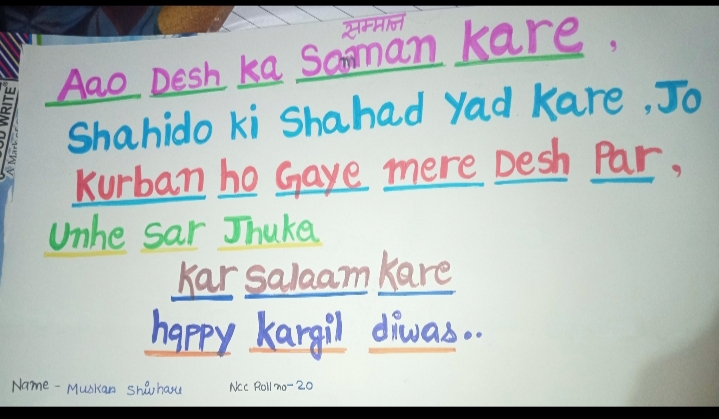 सम्मान
Aao Desh ka Samman kare,
Shahido ki Shahad Yad Kare, Jo
Kurban ho Gaye mere Desh Par,
Unhe Sar Jhuka
Kar Salaam Kare
happy kargil diwas..
Name - Muskan Shivhare Ncc Roll no-20
WRITE